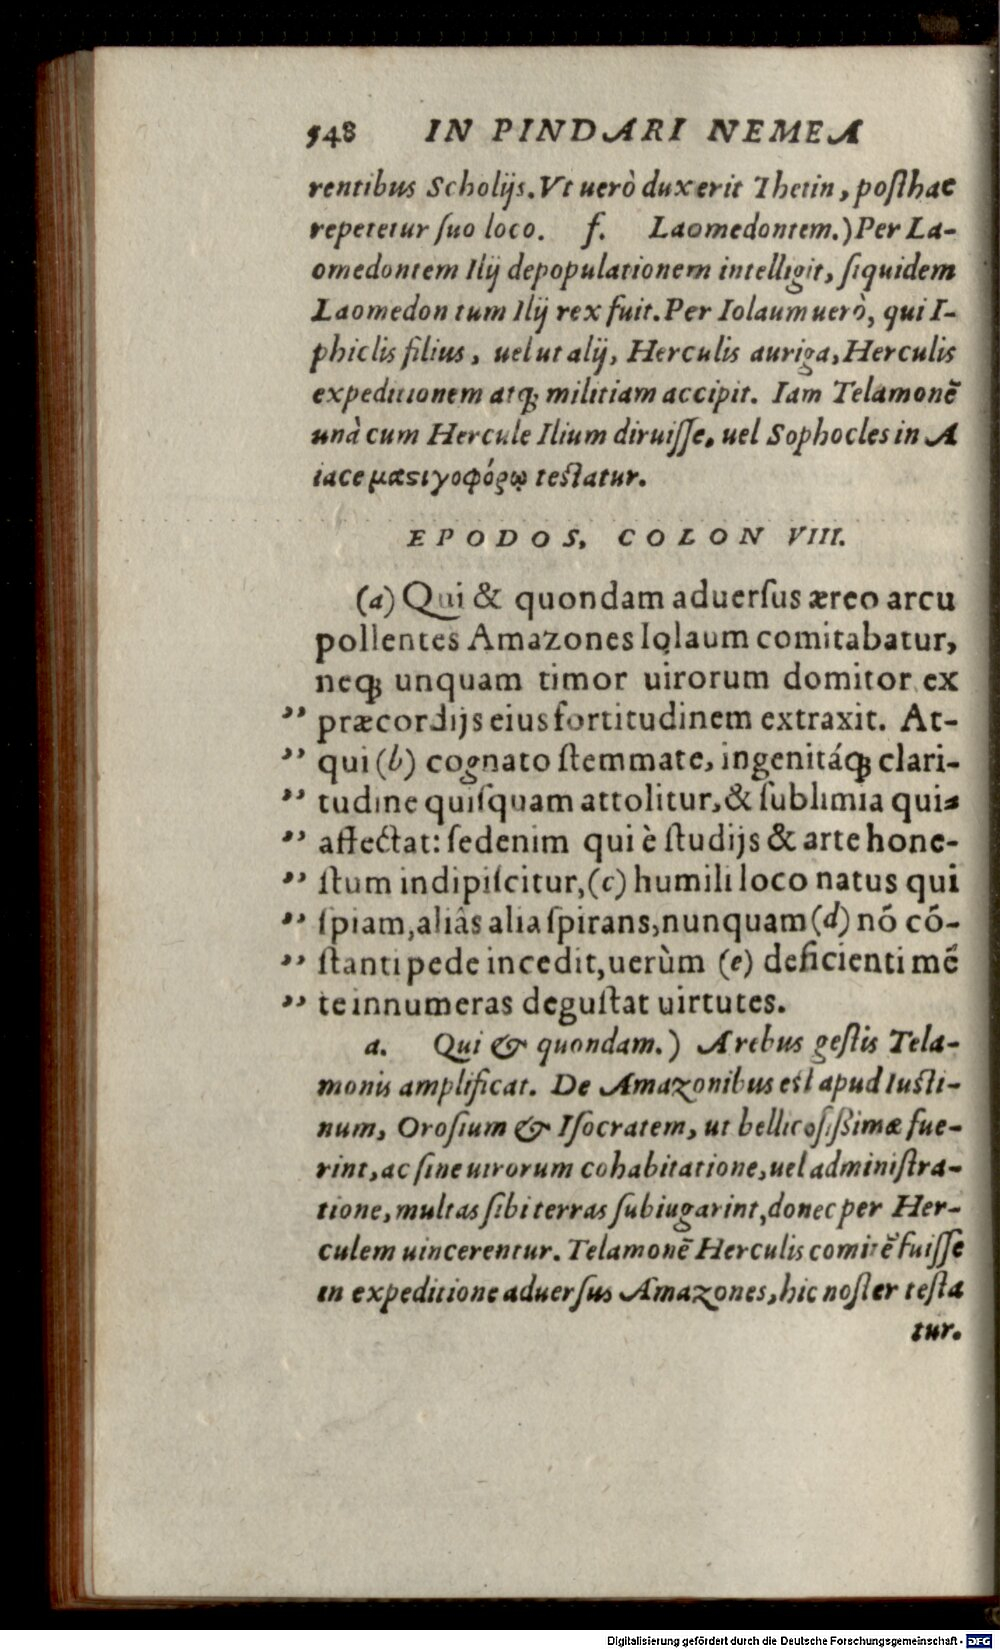 548 IN PINDARI NEMEA
rentibus Scholijs. Vt uerò duxerit Thetin, posthac
repetetur suo loco. f. Laomedontem.) Per La-
omedontem Ilij depopulationem intelligit, siquidem
Laomedon tum Ilij rex fuit. Per Iolaum uerò, qui I-
phiclis filius, uel ut alij, Herculis auriga, Herculis
expeditionem atq; militiam accipit. Iam Telamonē
unà cum Hercule Ilium diruisse, uel Sophocles in A
iace μαϛιγοφόρῳ testatur.
EPODOS, COLON VIII.
(a) Qui & quondam aduersus æreo arcu
pollentes Amazones Iolaum comitabatur,
neq; unquam timor uirorum domitor ex
„ præcordijs eius fortitudinem extraxit. At-
„ qui (b) cognato stemmate, ingenitáq; clari-
„ tudine quisquam attolitur, & sublimia quis
„ affectat: sedenim qui è studijs & arte hone-
„ stum indipiscitur, (c) humili loco natus qui
„ spiam, aliâs alia spirans, nunquam (d) nō cō-
„ stanti pede incedit, uerùm (e) deficienti mē
„ te innumeras degustat uirtutes.
a. Qui & quondam.) A rebus gestis Tela-
monis amplificat. De Amazonibus est apud Iusti-
num, Orosium & Isocratem, ut bellicosißimæ fue-
rint, ac sine uirorum cohabitatione, uel administra-
tione, multas sibi terras subiugarint, donec per Her-
culem uincerentur. Telamonē Herculis comitē fuisse
in expeditione aduersus Amazones, hic noster testa
tur.
Digitalisierung gefördert durch die Deutsche Forschungsgemeinschaft - DFG